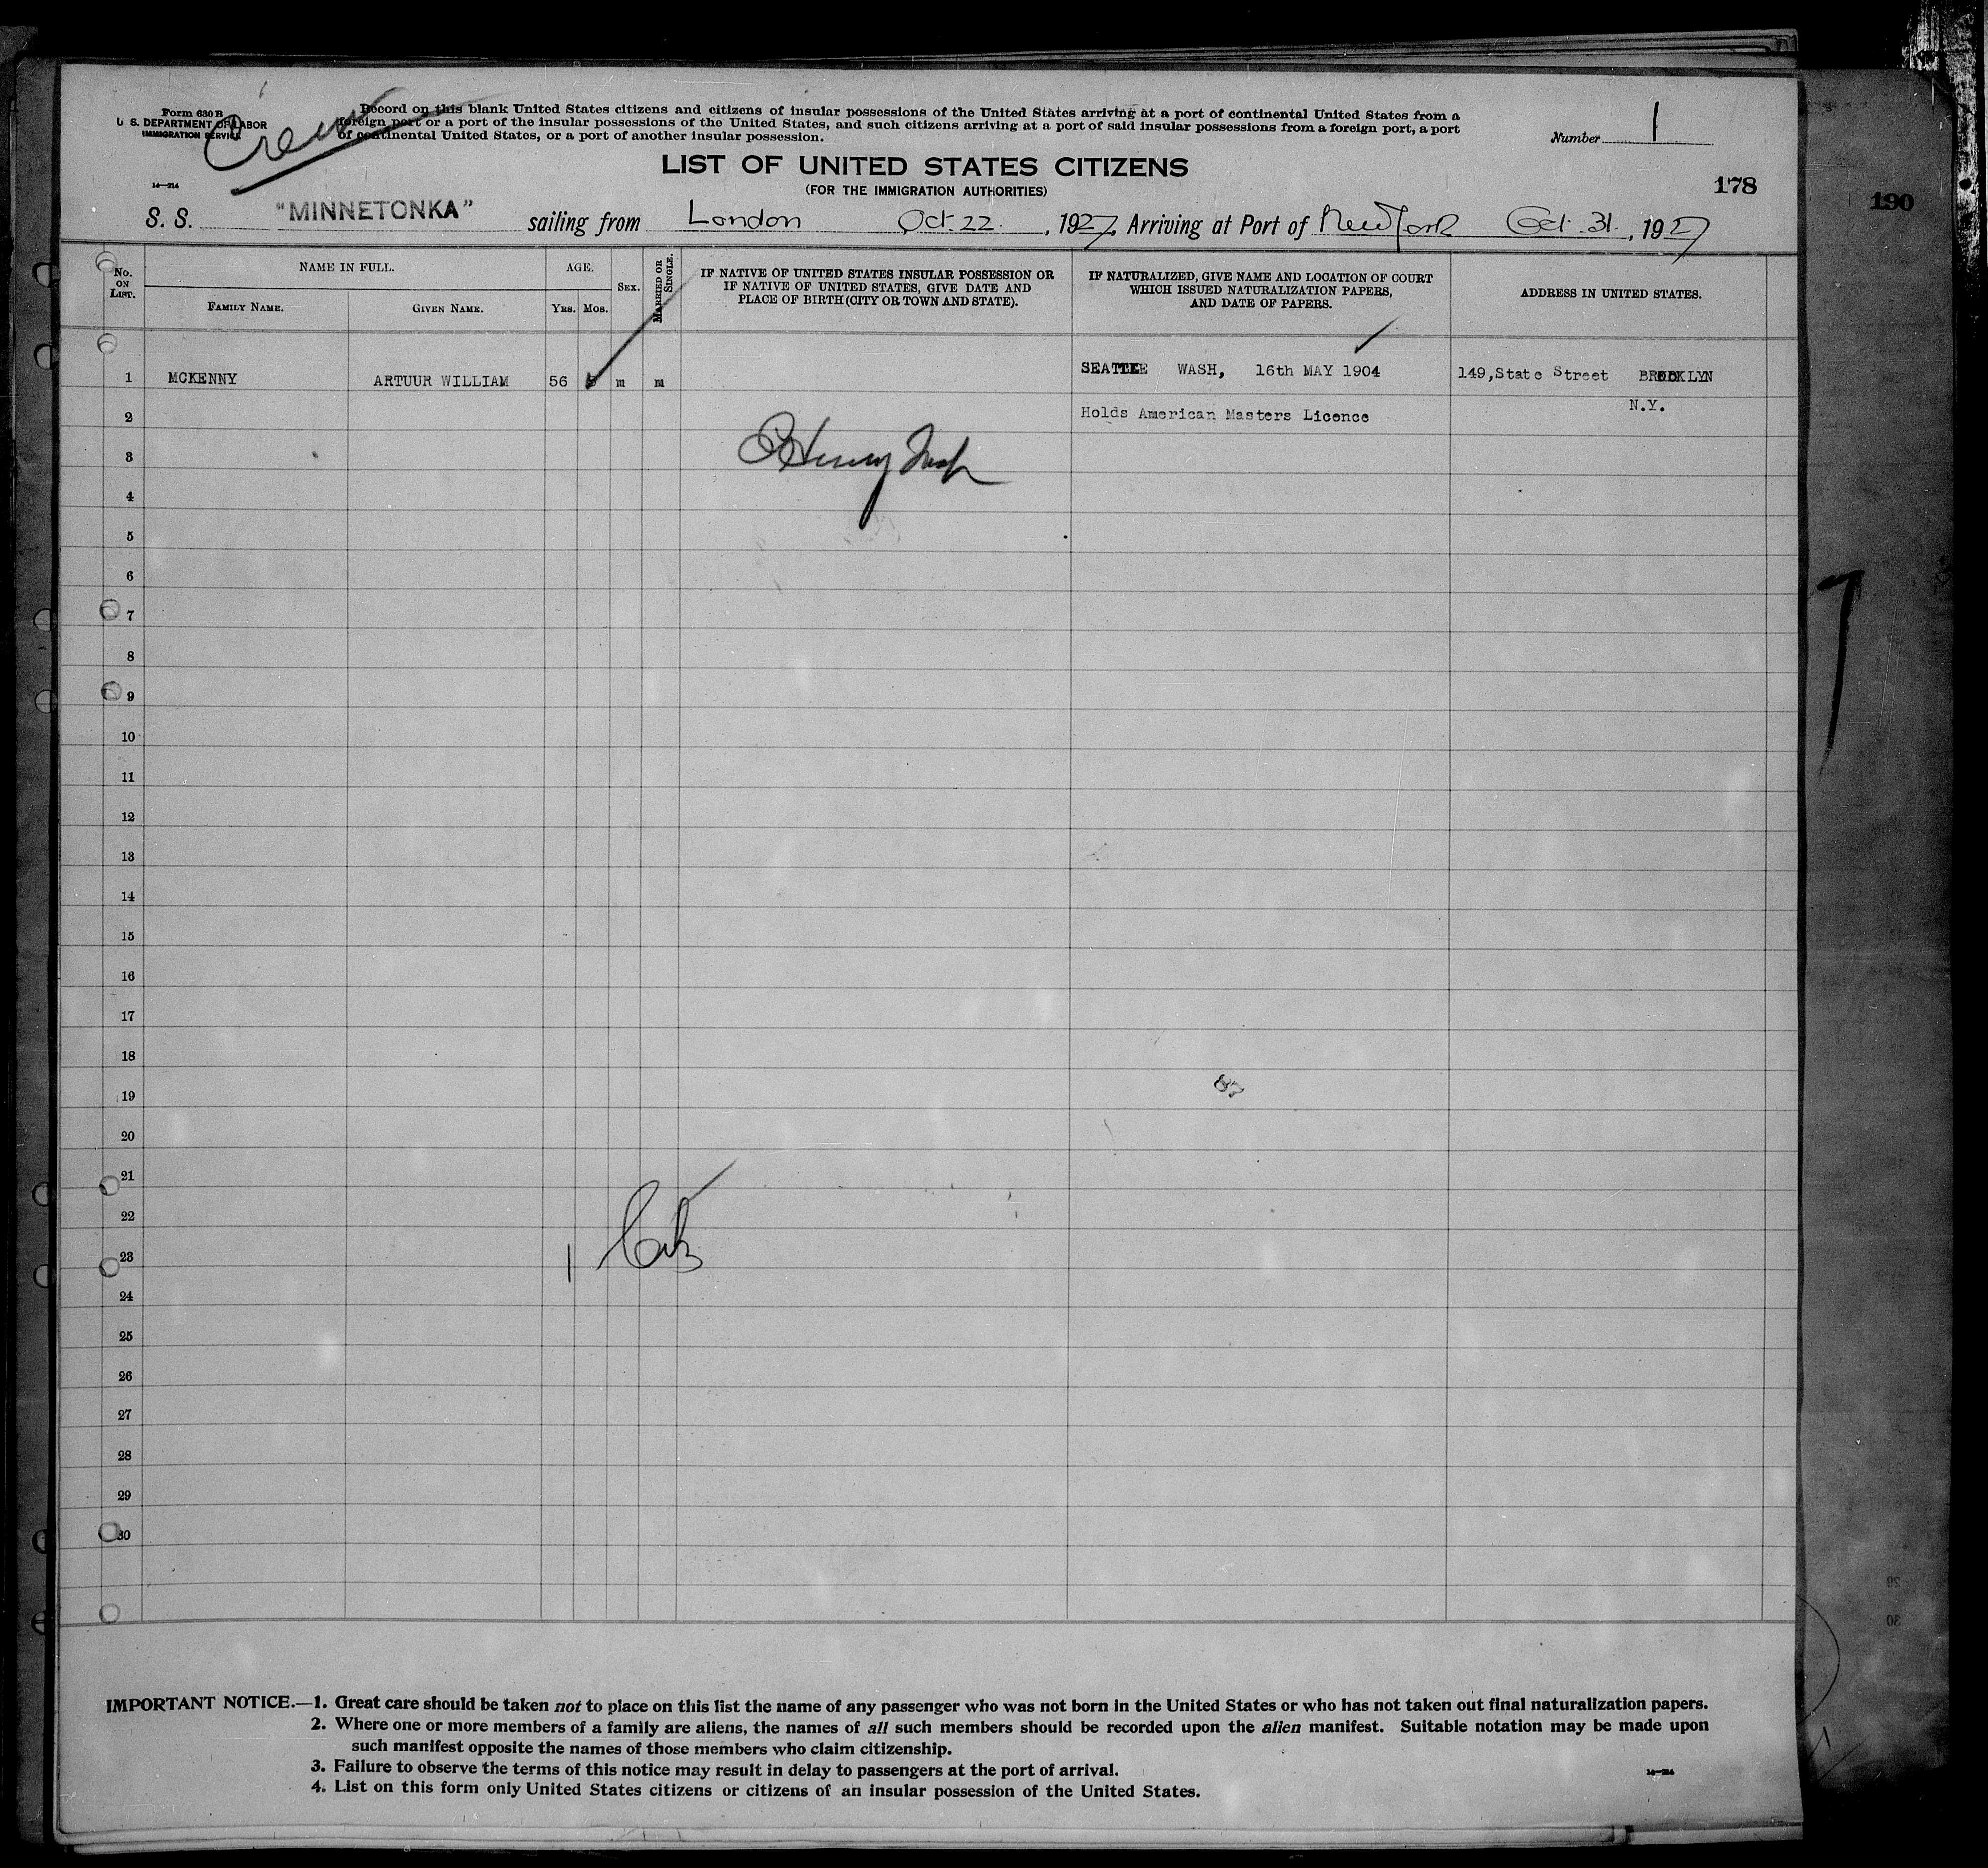 Form 630 B
U. S. DEPARTMENT OF LABOR
IMMIGRATION SERVICE
Crew
Record on this blank United States citizens and citizens of insular possessions of the United States arriving at a port of continental United States from a
foreign port or a port of the insular possessions of the United States, and such citizens arriving at a port of said insular possessions from a foreign port, a port
of continental United States, or a port of another insular possession.
Number 1
LIST OF UNITED STATES CITIZENS
(FOR THE IMMIGRATION AUTHORITIES)
14—214
178
190
S. S. "MINNETONKA" sailing from London Oct. 22. , 1927, Arriving at Port of New York Oct. 31. , 1927
No. ON LIST.
NAME IN FULL.
FAMILY NAME.
GIVEN NAME.
AGE.
YRS. MOS.
SEX.
MARRIED OR SINGLE.
IF NATIVE OF UNITED STATES INSULAR POSSESSION OR
IF NATIVE OF UNITED STATES, GIVE DATE AND
PLACE OF BIRTH (CITY OR TOWN AND STATE).
IF NATURALIZED, GIVE NAME AND LOCATION OF COURT
WHICH ISSUED NATURALIZATION PAPERS,
AND DATE OF PAPERS.
ADDRESS IN UNITED STATES.
1 MCKENNY ARTUUR WILLIAM 56 m m SEATTLE WASH, 16th MAY 1904 149,State Street BROOKLYN
N.Y.
2 Holds American Masters Licence
3
4
5
6
7
8
9
10
11
12
13
14
15
16
17
18
19
20
21
22
23
1
24
25
26
27
28
29
30
IMPORTANT NOTICE.—1. Great care should be taken not to place on this list the name of any passenger who was not born in the United States or who has not taken out final naturalization papers.
2. Where one or more members of a family are aliens, the names of all such members should be recorded upon the alien manifest. Suitable notation may be made upon
such manifest opposite the names of those members who claim citizenship.
3. Failure to observe the terms of this notice may result in delay to passengers at the port of arrival.
4. List on this form only United States citizens or citizens of an insular possession of the United States.
14—214